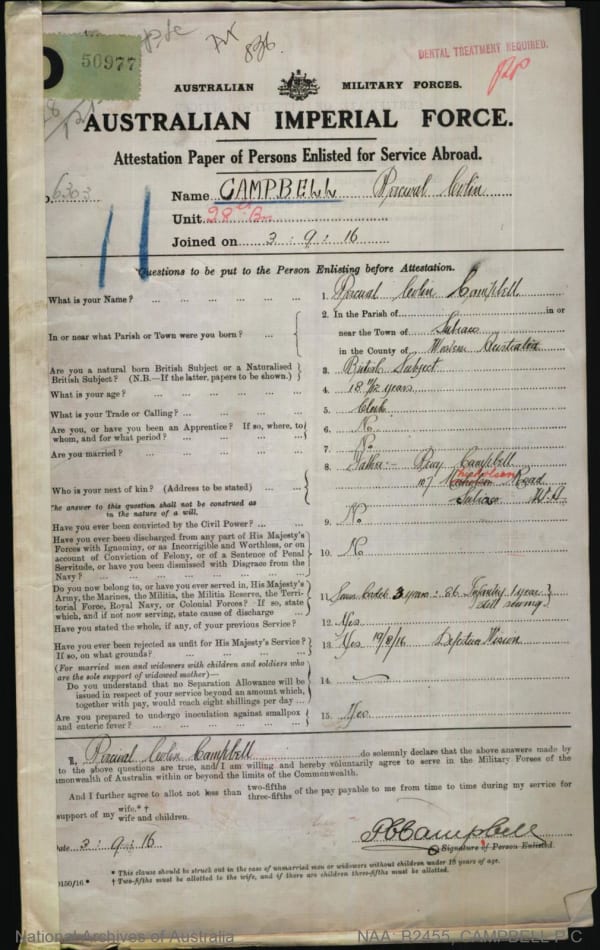 50977
DENTAL TREATMENT REQUIRED.
AUSTRALIAN MILITARY FORCES.
AUSTRALIAN IMPERIAL FORCE.
Attestation Paper of Persons Enlisted for Service Abroad.
6303
Name CAMPBELL Percival Colin
Unit 28th Bn
Joined on 3 : 9 : 16
11
Questions to be put to the Person Enlisting before Attestation.
What is your Name? ... 1. Percival Colin Campbell
In or near what Parish or Town were you born? ... 2. In the Parish of in or
near the Town of Subiaco
in the County of Western Australia
Are you a natural born British Subject or a Naturalised British Subject? (N.B.—If the latter, papers to be shown.) 3. British Subject
What is your age? ... 4. 18 years
What is your Trade or Calling? ... 5. Clerk
Are you, or have you been an Apprentice? If so, where, to whom, and for what period? ... 6. No
Are you married? ... 7. No
Who is your next of kin? (Address to be stated) ... 8. Father:- Campbell
107 Nicholson Road
Subiaco W.A
The answer to this question shall not be construed as in the nature of a will.
Have you ever been convicted by the Civil Power? ... 9. No
Have you ever been discharged from any part of His Majesty's Forces with Ignominy, or as Incorrigible and Worthless, or on account of Conviction of Felony, or of a Sentence of Penal Servitude, or have you been Dismissed with Disgrace from the Navy? ... 10. No
Do you now belong to, or have you ever served in, His Majesty's Army, the Marines, the Militia, the Militia Reserve, the Territorial Force, Royal Navy, or Colonial Forces? If so, state which, and if not now serving, state cause of discharge 11. Senr Cadets 3 years : 86 Infantry 1 year
still serving
Have you stated the whole, if any, of your previous Service? 12. Yes
Have you ever been rejected as unfit for His Majesty's Service? If so, on what grounds? ... 13. Yes /8/16 Defective Vision
(For married men and widowers with children and soldiers who are the sole support of widowed mother)—
Do you understand that no Separation Allowance will be issued in respect of your service beyond an amount which, together with pay, would reach eight shillings per day ... 14.
Are you prepared to undergo inoculation against smallpox and enteric fever? ... 15. Yes
I, Percival Colin Campbell do solemnly declare that the above answers made by
to the above questions are true, and I am willing and hereby voluntarily agree to serve in the Military Forces of the
monwealth of Australia within or beyond the limits of the Commonwealth.
And I further agree to allot not less than two-fifths three-fifths of the pay payable to me from time to time during my service for
support of my wife.*† wife and children.
Date 3 . 9 : 16
P C Campbell
Signature of Person Enlisted.
* This clause should be struck out in the case of unmarried men or widowers without children under 18 years of age.
† Two-fifths must be allotted to the wife, and if there are children three-fifths must be allotted.
National Archives of Australia
NAA: B2455, CAMPBELL P C